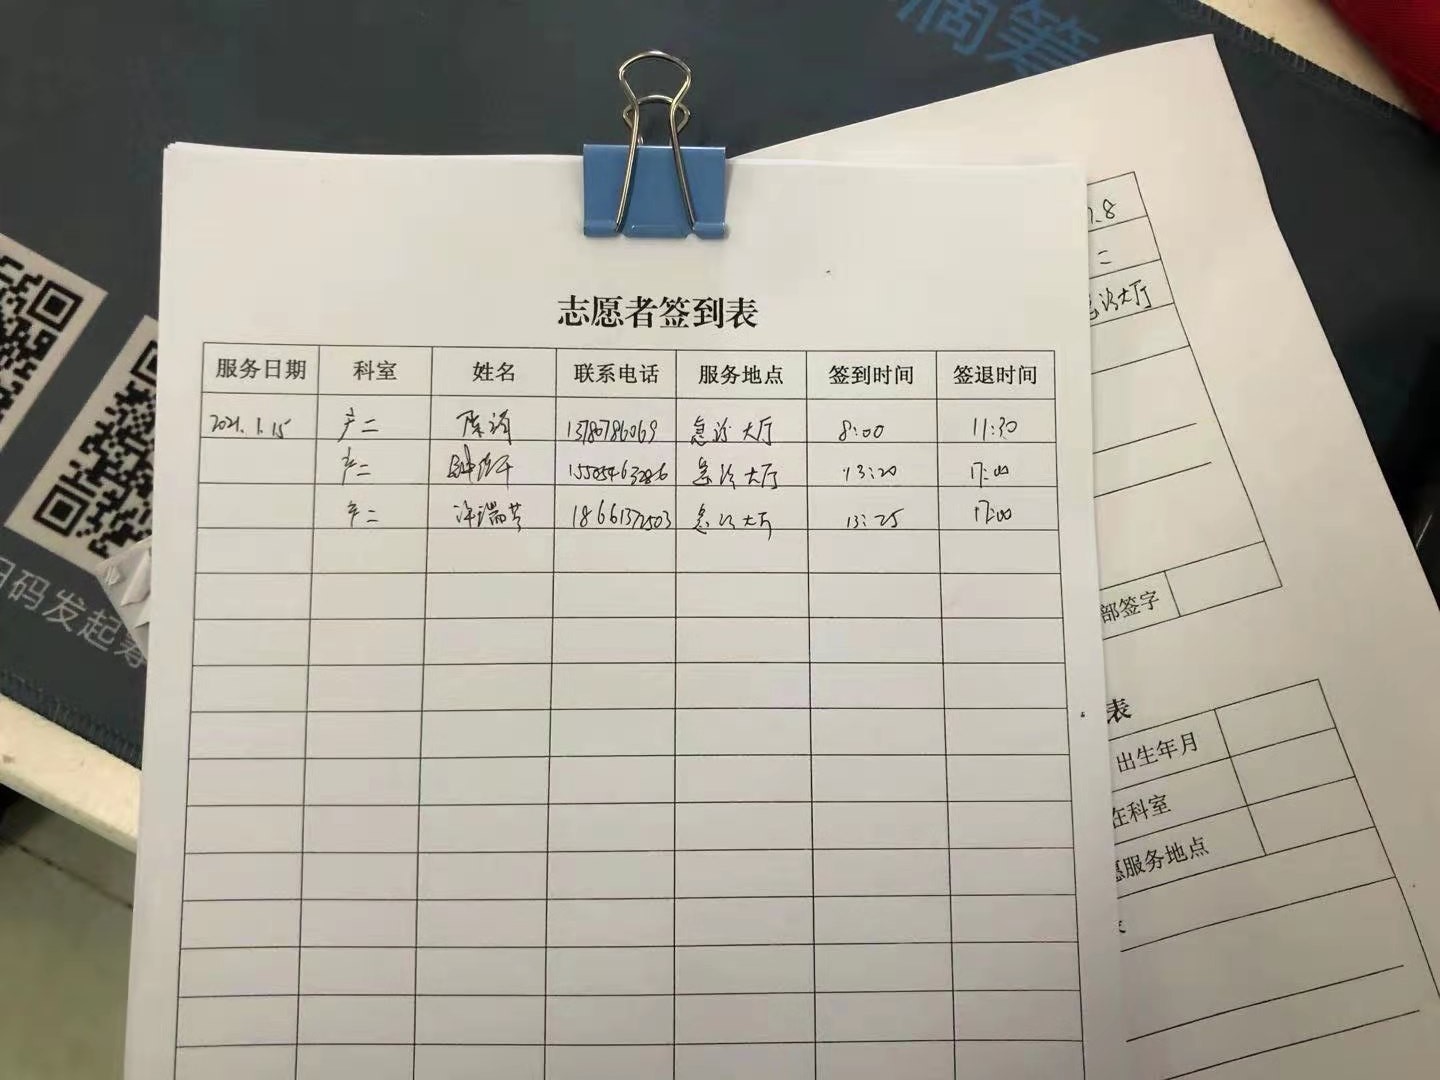 滴筹
志愿者签到表
服务日期 科室 姓名 联系电话 服务地点 签到时间 签退时间
2021.1.15 产二 陈 13780786069 急诊大厅 8:00 11:30
产二 急诊大厅 13:20 17:00
产二 许瑞芳 18661372503 急诊大厅 13:25 17:00
扫码发起筹
1.8
二
急诊大厅
部签字
表
出生年月
在科室
愿服务地点